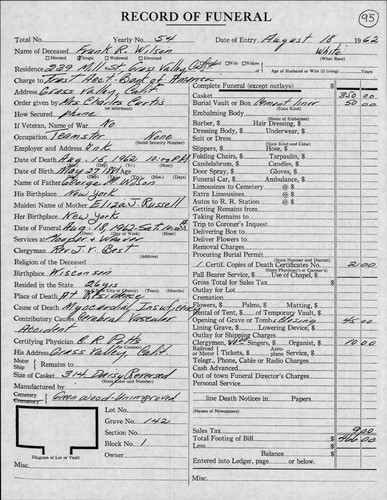 RECORD OF FUNERAL
95
Total No. Yearly No. 54 Date of Entry August 18 1962
Name of Deceased Frank R. Wilson White
Married Single Widowed Divorced (What Race)
Residence 239 Mill St. Grass Valley, Calif. Wife Widow Age of Husband or Wife (if living)
Charge to Trust Dept - Bank of America
Address Grass Valley, Calif.
Order given by Mrs Charles Curtis
How Secured phone
If Veteran, Name of War No
Occupation Teamster None
(Social Security Number)
Employer and Address Unk
Date of Death Aug. 15, 1962 10:00 PM
Date of Birth May 27 1881 Age
Name of Father George M. Wilson
His Birthplace New York
Maiden Name of Mother Eliza J. Russell
Her Birthplace New York
Date of Funeral Aug 18, 1962 - Sat.
(Date) (Day of Week) (Hour)
Services at Hooper & Weaver
Clergyman Rev J. V. Best
Religion of the Deceased
Birthplace Wisconsin
Resided in the State 26 yrs
Place of Death At Residence
Cause of Death Myocardial Insufficiency
Contributory Cause Cerebral Vascular
Accident
Certifying Physician C. R. Potts
His Address Grass Valley Calif.
Motor Ship Remains to
Size of Casket 314 Daisy Reversed
(State Color and Number)
Manufactured by
Cemetery Crematory Greenwood - Unimproved
Lot No.
Grave No. 142
Section No.
Block No. 1
Owner
Diagram of Lot or Vault
Misc.
Complete Funeral (except outlays) $
Casket 350 00
Burial Vault or Box Cement liner 50 00
(State Kind)
Embalming Body
(Name of Embalmer)
Barber, $ Hair Dressing, $
Dressing Body, $ Underwear, $
Suit or Dress
(State Kind and Color)
Slippers, $ Hose, $
Folding Chairs, $ Tarpaulin, $
Candelabrum, $ Candles, $
Door Spray, $ Gloves, $
Funeral Car, $ Ambulance, $
Limousines to Cemetery @ $
Extra Limousines @ $
Autos to R. R. Station @ $
Getting Remains from
Taking Remains to
Trip to Coroner's Inquest
Delivering Box to
Deliver Flowers
Removal Charges
Procuring Burial Permit
(State Number and District)
1 Certif. Copies of Death Certificates No. 2 00
(State Physician's or Coroner's)
Pall Bearer Service, $ Use of Chapel, $
Gross Total for Sales Tax $
Outlay for Lot
Cremation
Flowers, $ Palms, $ Matting, $
Rental of Tent, $ of Temporary Vault, $
Opening of Grave or Tomb Closing 45 00
Lining Grave, $ Lowering Device, $
Outlay for Shipping Charges
Clergymen, $ Singers, $ Organist, $ 10 00
Railroad or Motor Tickets, $ Aeroplane Service, $
Telegr., Phone, Cable or Radio Charges
Cash Advanced
Out of town Funeral Director's Charges
Personal Service
line Death Notices in Papers
(Names of Newspapers)
Sales Tax 9 00
Total Footing of Bill $ 466 00
Less
Balance $
Entered into Ledger, page or below.
Misc.